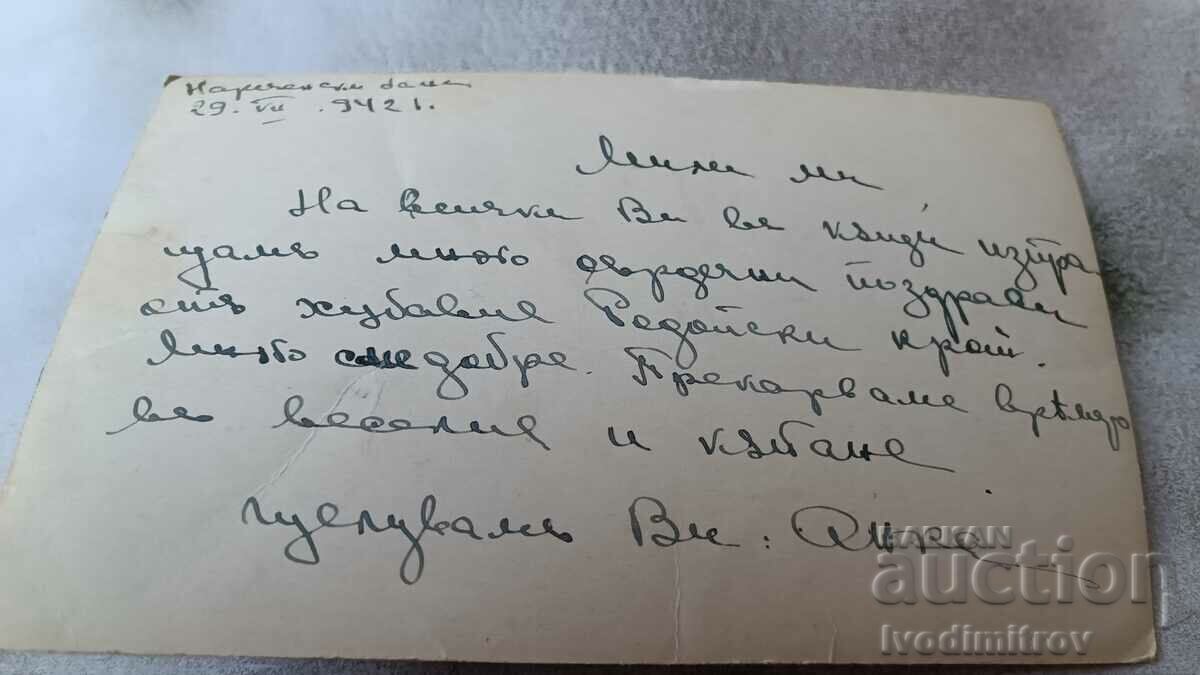 Нареченски бани
29. VII. 942 г.
Мили ми
На всички Ви въ кѫщи изпра-
щамъ много сърдечни поздрави
отъ хубавия Родопски край.
Много сме добре. Прекарваме врѣмето
въ веселие и къпане
Цѣлувамъ Ви: Анка
БАЛКАН
auction
Ivodimitrov